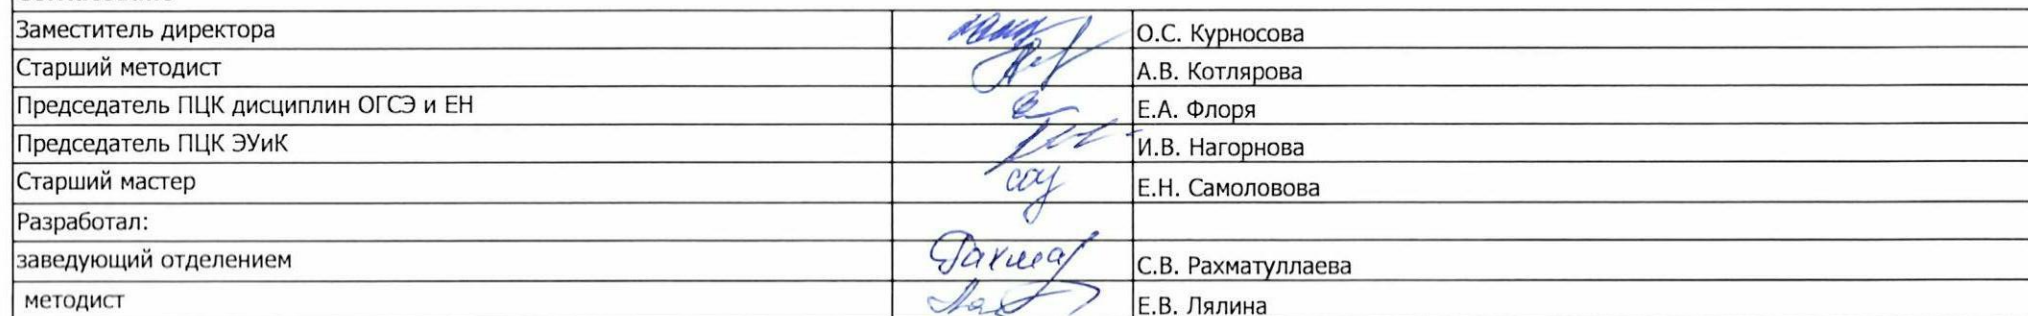 Заместитель директора О.С. Курносова
Старший методист А.В. Котлярова
Председатель ПЦК дисциплин ОГСЭ и ЕН Е.А. Флоря
Председатель ПЦК ЭУиК И.В. Нагорнова
Старший мастер Е.Н. Самоловова
Разработал:
заведующий отделением С.В. Рахматуллаева
методист Е.В. Лялина